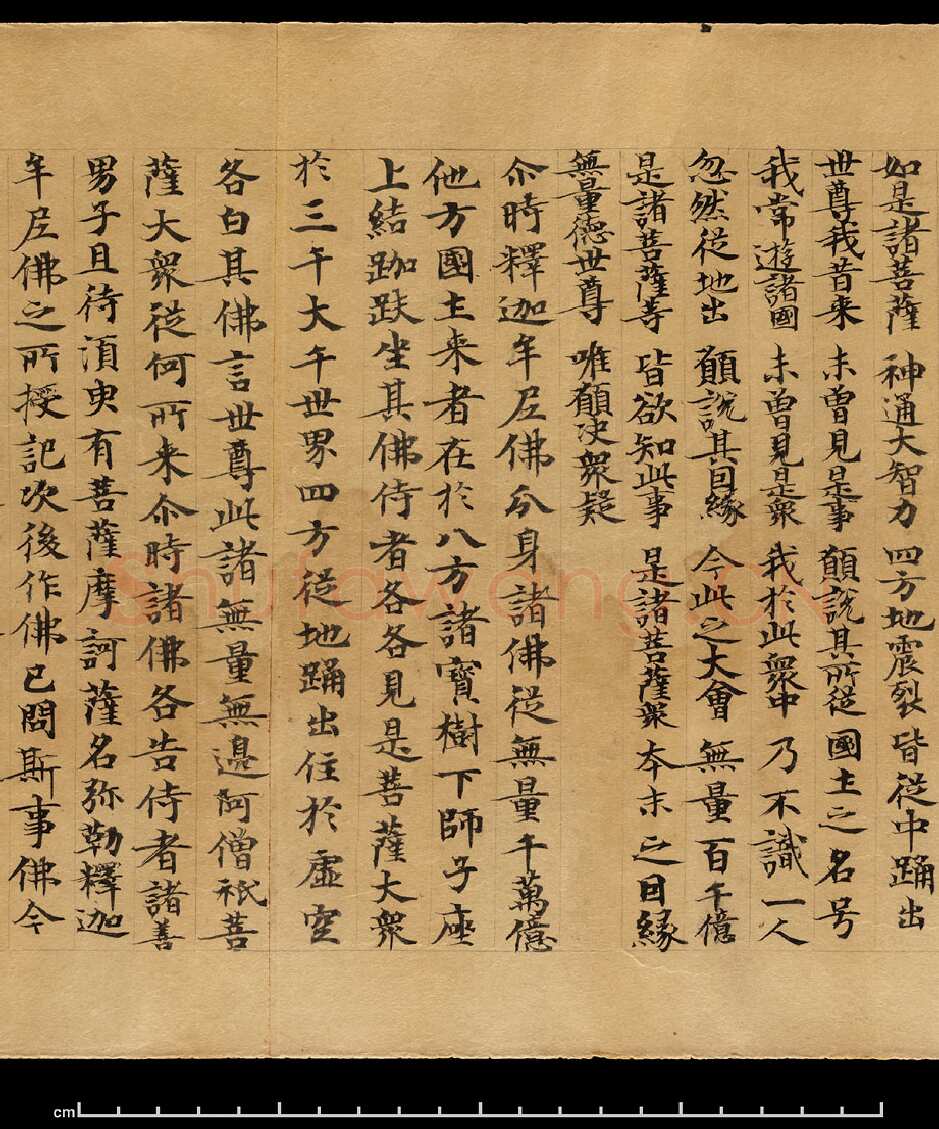 如是諸菩薩 神通大智力 四方地震裂 皆從中踊出
世尊我昔来 未曽見是事 願說其所從 國土之名号
我常遊諸國 未曽見是衆 我於此衆中 乃不識一人
忽然從地出 願說其因緣 今此之大會 無量百千億
是諸菩薩等 皆欲知此事 是諸菩薩衆 本末之因緣
無量德世尊 唯願决衆疑
尒時釋迦牟尼佛分身諸佛從無量千萬億
他方國土来者在於八方諸寳樹下師子座
上結跏趺坐其佛侍者各各見是菩薩大衆
於三千大千世界四方從地踊出住於虛空
各白其佛言世尊此諸無量無邊阿僧祇菩
薩大衆從何所来尒時諸佛各告侍者諸善
男子且待湏臾有菩薩摩訶薩名弥勒釋迦
牟尼佛之所授記次後作佛已問斯事佛今
Shufawang.CN
cm